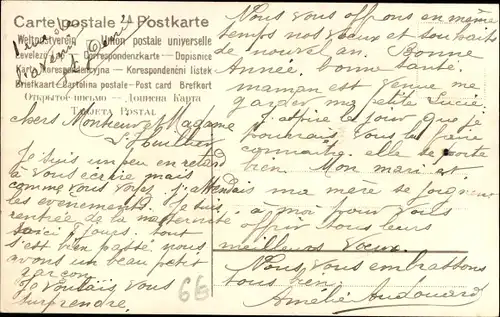 Carte postale Postkarte
Weltpostverein Union postale universelle
Correspondenzkarte - Dopisnice
Karta Korespondencyjna - Korespondenční listek
Briefkaart - Cartolina postale - Post card - Brefkort
Открытое письмо - Дописна Карта
Tarjeta Postal
chers Monsieur et Madame
Je suis un peu en retard
à vous écrire mais
comme vous voyez j'attendais
les évenements. Je suis
rentrée de la maternité
voici jours. tout
s'est bien passé. nous
avons un beau petit
garçon.
Je voulais vous
surprendre.
Nous vous offrons en même
temps nos voeux et souhaits
de nouvel an. Bonne
Année. bonne santé.
maman est venue me
garder ma petite Lucie.
J'attire le jour que je
pourrais vous la faire
connaitre. elle se porte
bien. Mon mari et
ma mere se joignent
à moi pour vous
offrir tous leurs
meilleurs Voeux.
Nous vous embrassons
tous bien.
Amélie Audouard
66